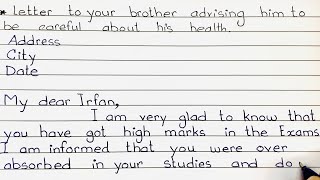 * Letter to your brother advising him to
be careful about his health.
Address
City
Date
My dear Irfan,
I am very glad to know that
you have got high marks in the Exams
I am informed that you were over
absorbed in your studies and do